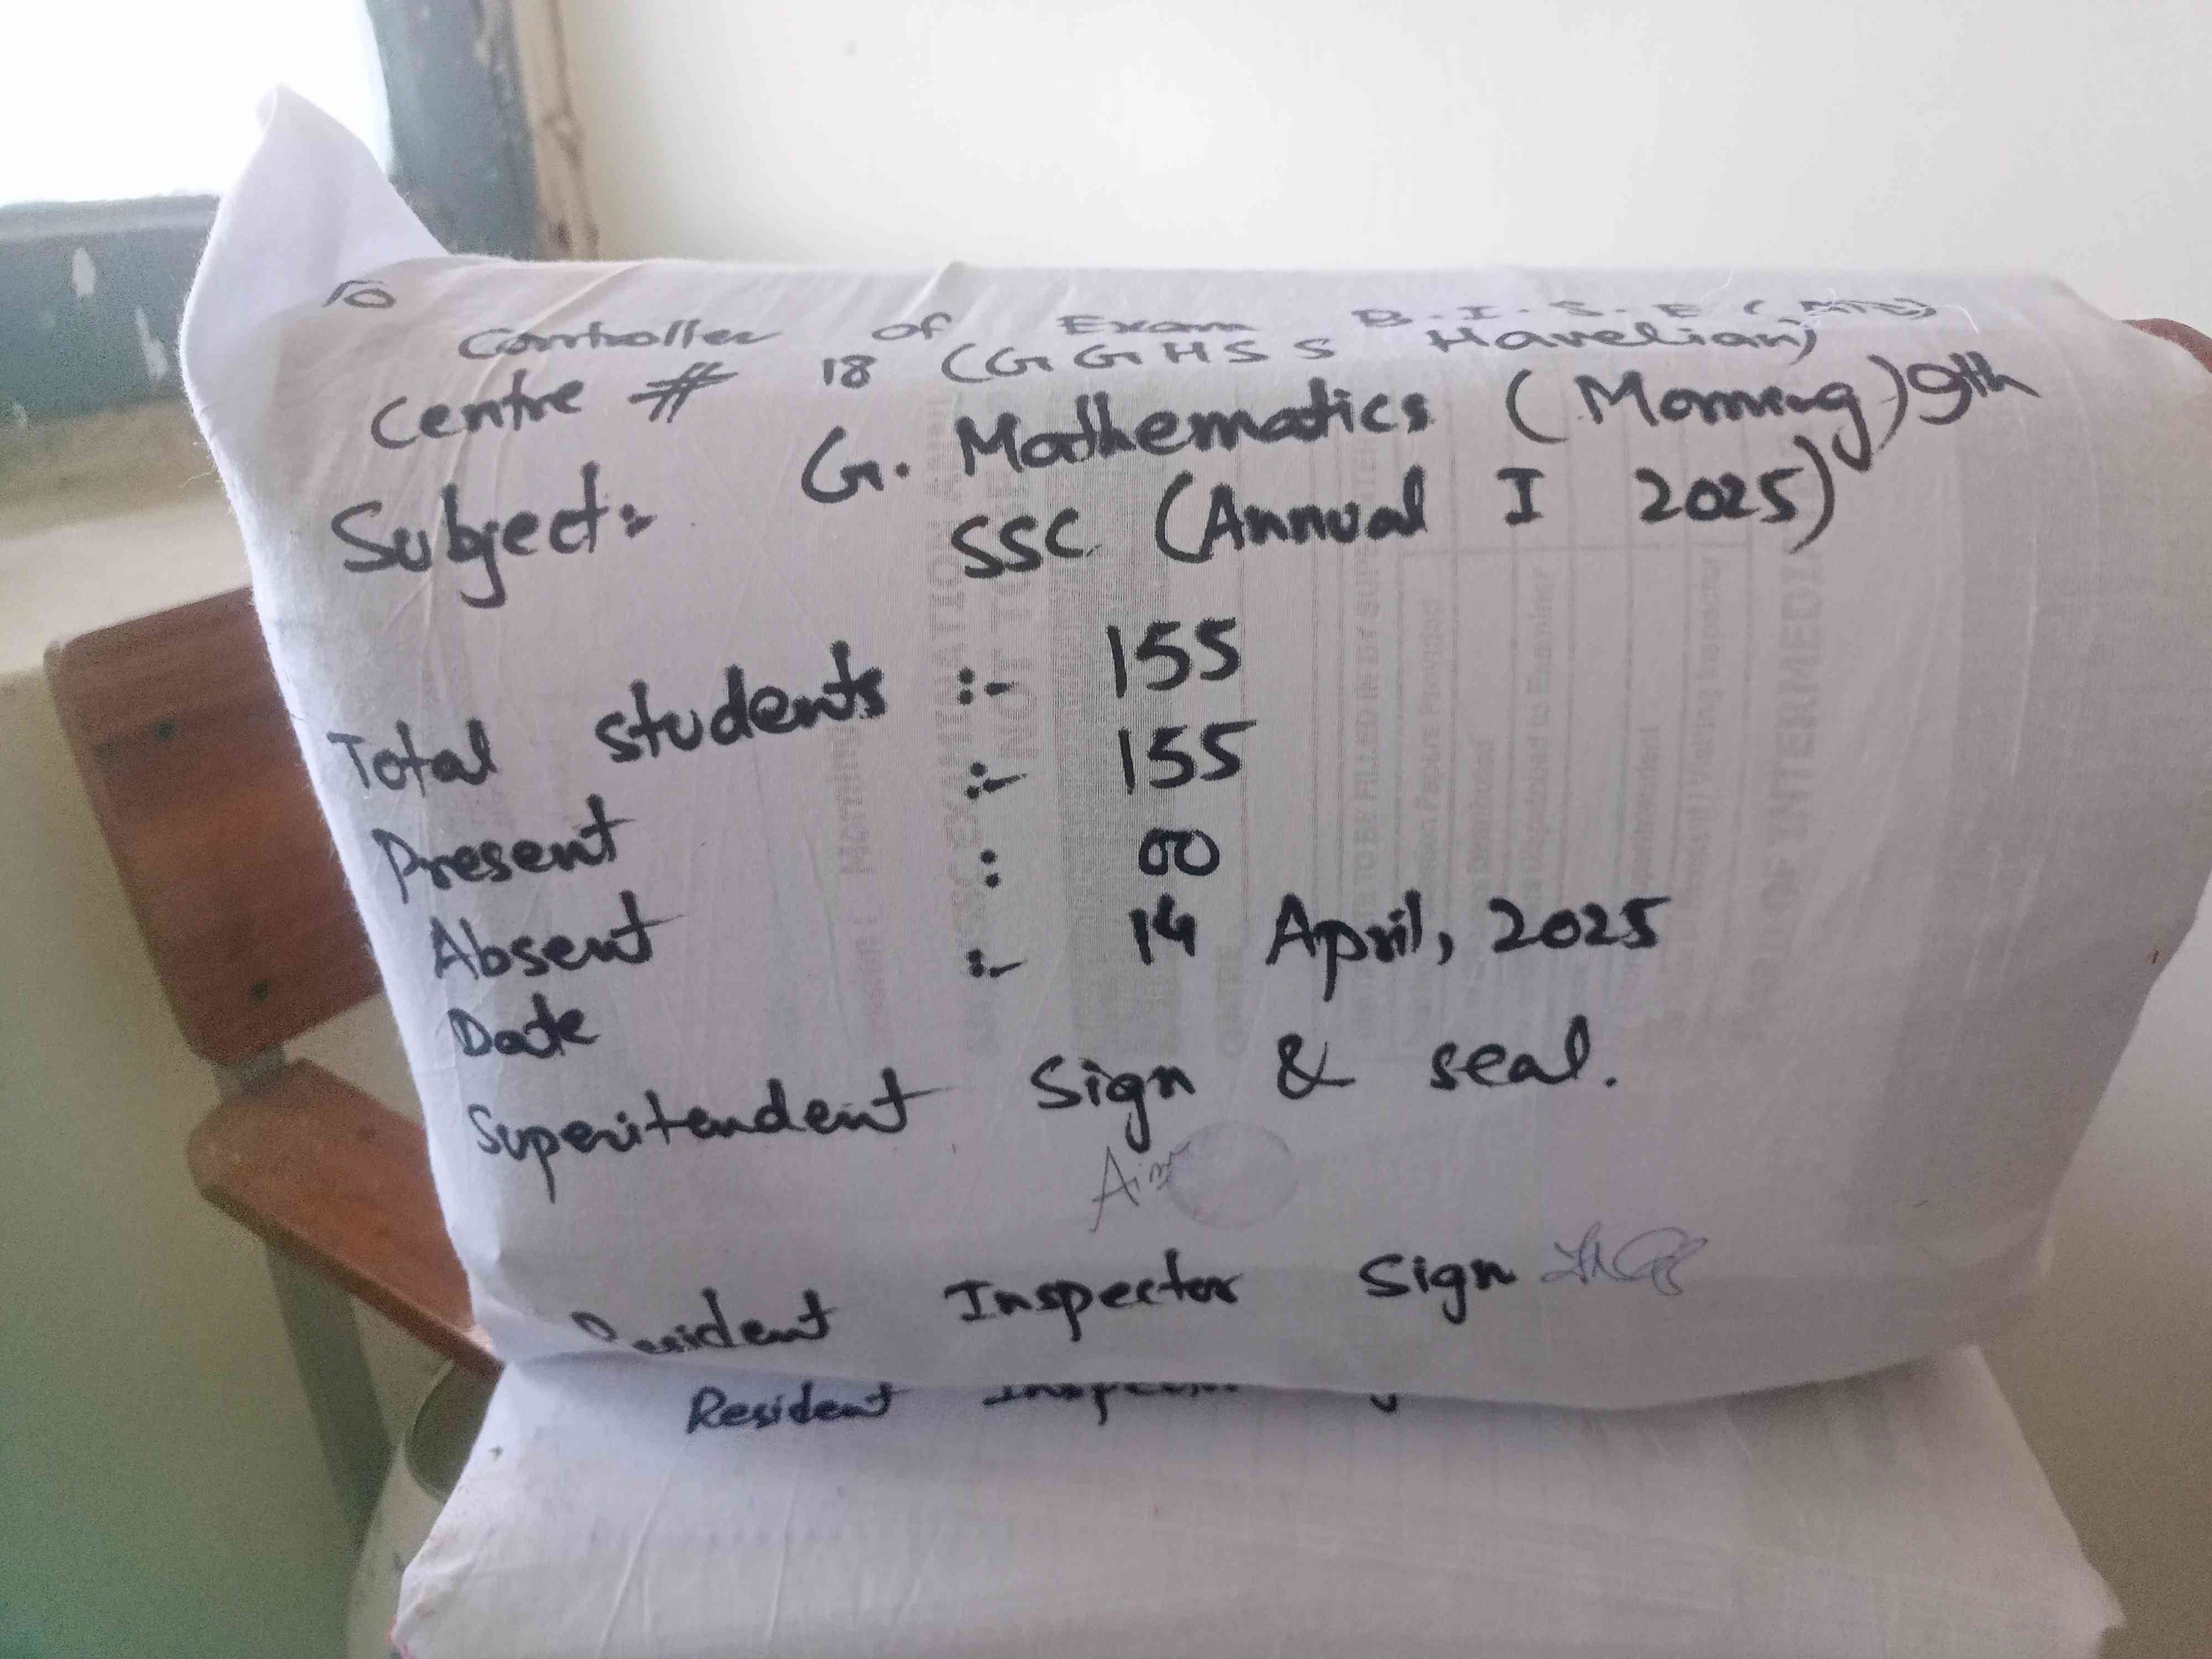 To
Controller of Exam B.I.S.E (ATD)
Centre # 18 (GGHSS Havelian)
Subject:- G. Mathematics (Morning) 9th
SSC (Annual I 2025)
Total students :- 155
Present :- 155
Absent : 00
Date :- 14 April, 2025
Superitendent Sign & seal.
Resident Inspector Sign
Resident Inspector